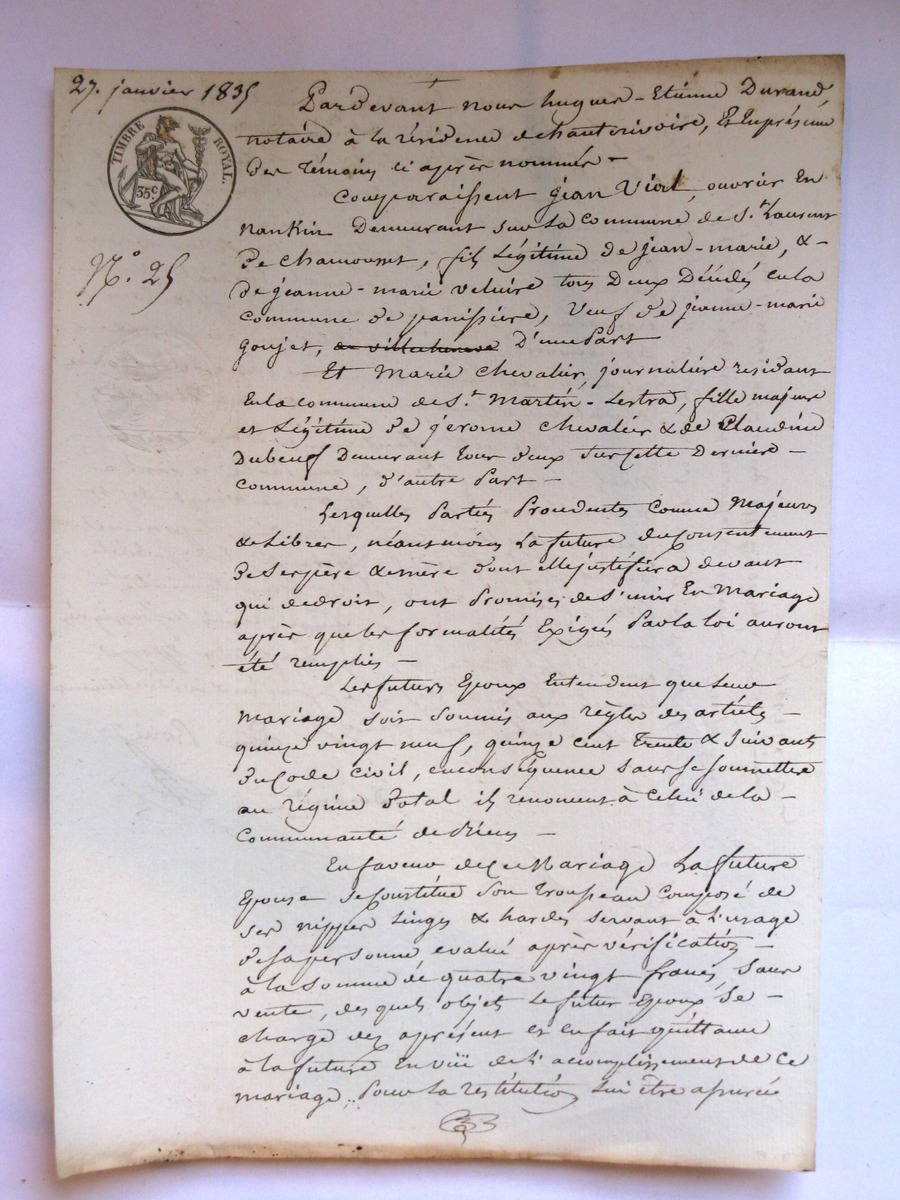 27. janvier 1835
TIMBRE ROYAL.
35 c.
N.° 25
Pardevant nous hugues-Etienne Durand,
notaire à la résidence de hauterivoire, Et En présence
Des témoins ci après nommés -
Comparaissent jean Vial, ouvrier En
nankin Demeurant sur la commune de S.t Laurent
De chamousset, fils Légitime de jean-marie, & -
de jeanne-marie veluire tous Deux Décédés en la
commune de panissière, veuf De jeanne-marie
goujet, D'une Part
Et Marie chevalier, journalière résidant
En la commune de S.t Martin-Lestra, fille majeure
et Légitime De jérome chevalier & de Claudine
Dubeuf Demeurant tous deux sur cette dernière -
commune, d'autre Part -
Lesquelles Parties Procédentes comme Majeures
& Libres, néantmoins La future du consentement
De ses père & mère dont elle justifiera devant
qui de droit, ont Promises de S'unir En Mariage
après que les formalités Exigées Par la loi auront
été remplies -
Les futurs Epoux Entendent que Leur
Mariage soit soumis aux règles des articles -
quinze vingt neuf, quinze cent trente & suivants
Du Code civil, en conséquence sans se soumettre
au régime dotal ils renoncent à celui de la -
Communauté de Biens -
En faveur de ce Mariage La future
Epouse se Constitue Son trousseau composé de
ses nippes Linges & hardes servant à L'usage
de sa personne, évalué après vérification -
à la somme de quatre vingt francs, sans
vente, des quels objets Le futur Epoux Se -
charge dès aprésent et en fait quittance
à la future En vüe de L'accomplissement de ce
mariage. Pour La restitution lui être assurée